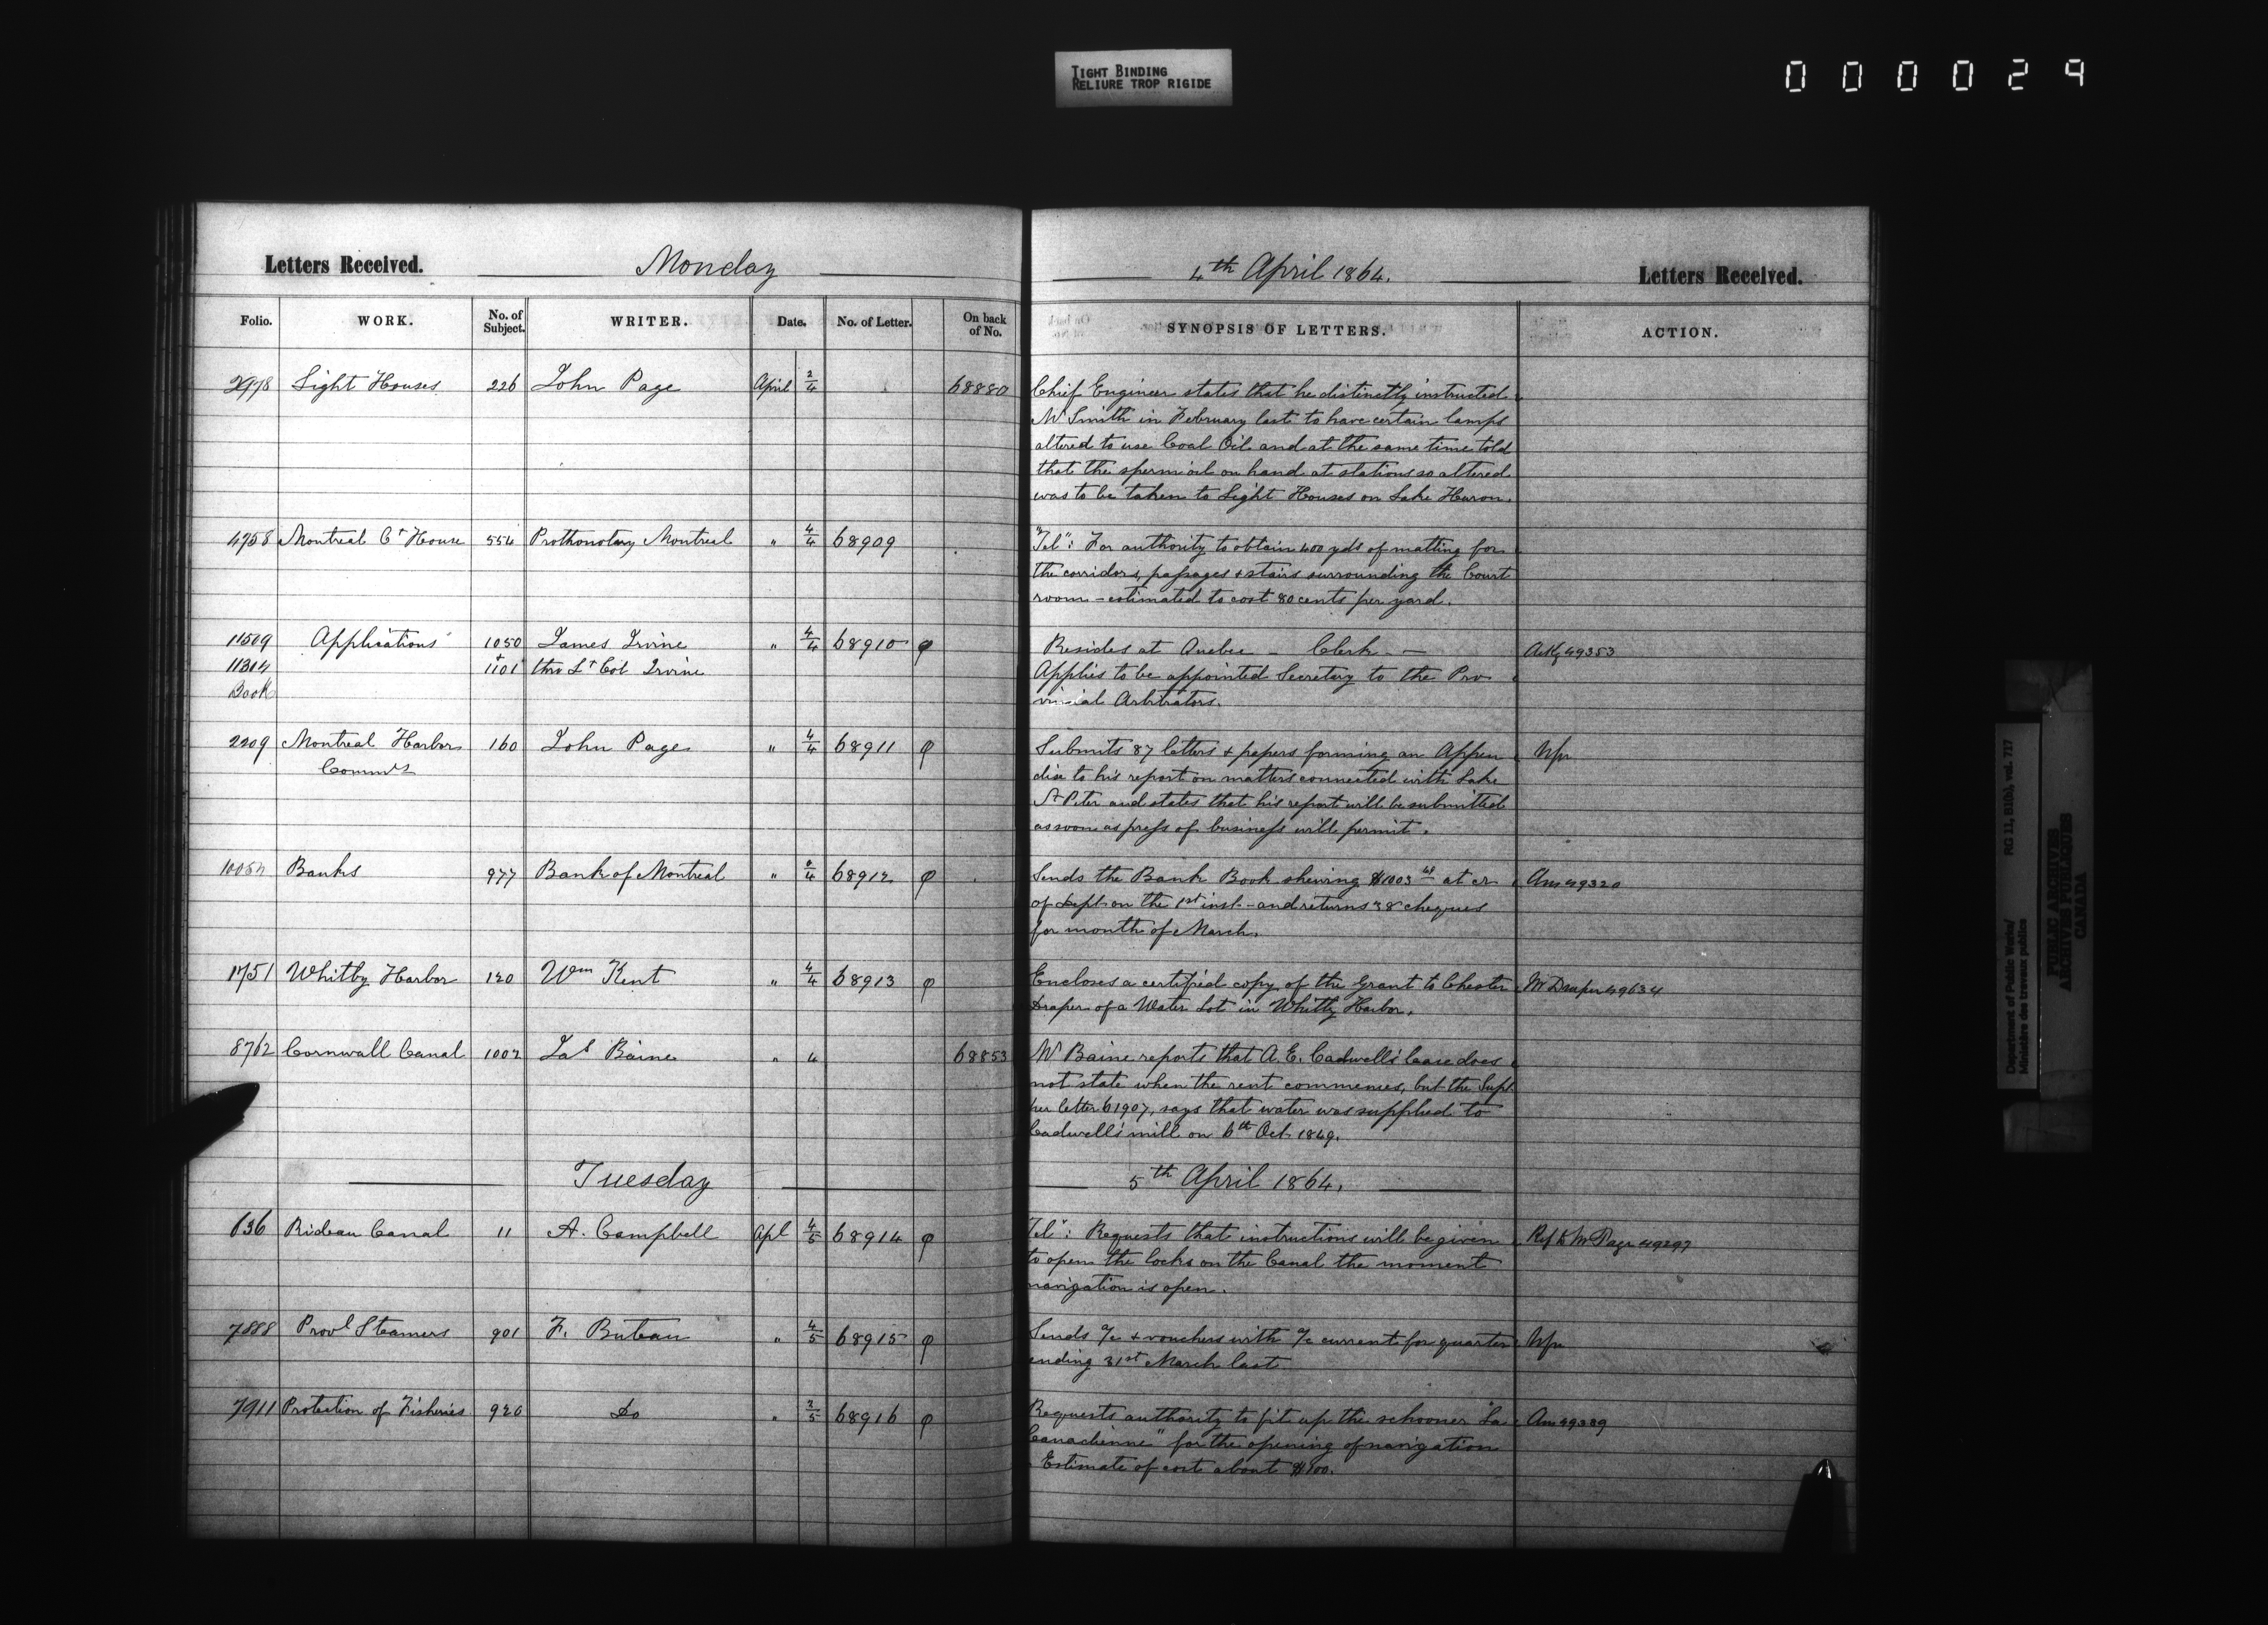 TIGHT BINDING
RELIURE TROP RIGIDE
000029
Letters Received. Monday 4th April 1864. Letters Received.
Folio. WORK. No. of Subject. WRITER. Date. No. of Letter. On back of No. SYNOPSIS OF LETTERS. ACTION.
2978 Light Houses 226 John Page April 2/4 68880 Chief Engineer states that he distinctly instructed
Mr Smith in February last to have certain lamps
altered to use Coal Oil and at the same time told
that the sperm oil on hand at stations so altered
was to be taken to Light Houses on Lake Huron.
4958 Montreal Ct House 554 Prothonotary Montreal " 4/4 68909 "Tel": For authority to obtain 400 yds of matting for
the corridors, passages & stairs surrounding the Court
room - estimated to cost 80 cents per yard.
11509 Applications 1050 James Irvine " 4/4 68910 φ Resides at Quebec - Clerk - Ackg 49353
11314 + 1101 thro Lt Col Irvine Applies to be appointed Secretary to the Pro
Book vincial Arbitrators.
2209 Montreal Harbor 160 John Page " 4/4 68911 φ Submits 87 letters & papers forming an Appen Nfr
Commrs dix to his report on matters connected with Lake
St Peter and states that his report will be submitted
as soon as press of business will permit.
Banks 977 Bank of Montreal " 68912 φ Sends the Bank Book shewing $1003 at cr Ans 49320
of Dept on the 1st inst. - and returns 38 cheques
for month of March.
1751 Whitby Harbor 120 Wm Kent " 4/4 68913 φ Encloses a certified copy of the Grant to Chester Mr Draper 49634
Draper of a Water Lot in Whitby Harbor.
8762 Cornwall Canal 1002 Jas Baine " 4 68853 Mr Baine reports that A. E. Cadwell's lease does
not state when the rent commences, but the Supt
per letter 61907, says that water was supplied to
Cadwell's mill on 6th Oct. 1849.
Tuesday 5th April 1864.
636 Rideau Canal 11 A. Campbell Apl 4/5 68914 φ Tel": Requests that instructions will be given Ref to Mr Page 49297
to open the locks on the Canal the moment
navigation is open.
7888 Provl Steamers 901 F. Buteau " 4/5 68915 φ Sends a/c & vouchers with a/c current for quarter Nfr
ending 31st March last
7911 Protection of Fisheries 920 Do " 2/5 68916 φ Requests authority to fit up the schooner "La Ans 49389
Canadienne" for the opening of navigation
Estimate of cost about $100.
Department of Public Works/ RG 11, B1(b), vol. 717
Ministère des travaux publics
PUBLIC ARCHIVES
ARCHIVES PUBLIQUES
CANADA